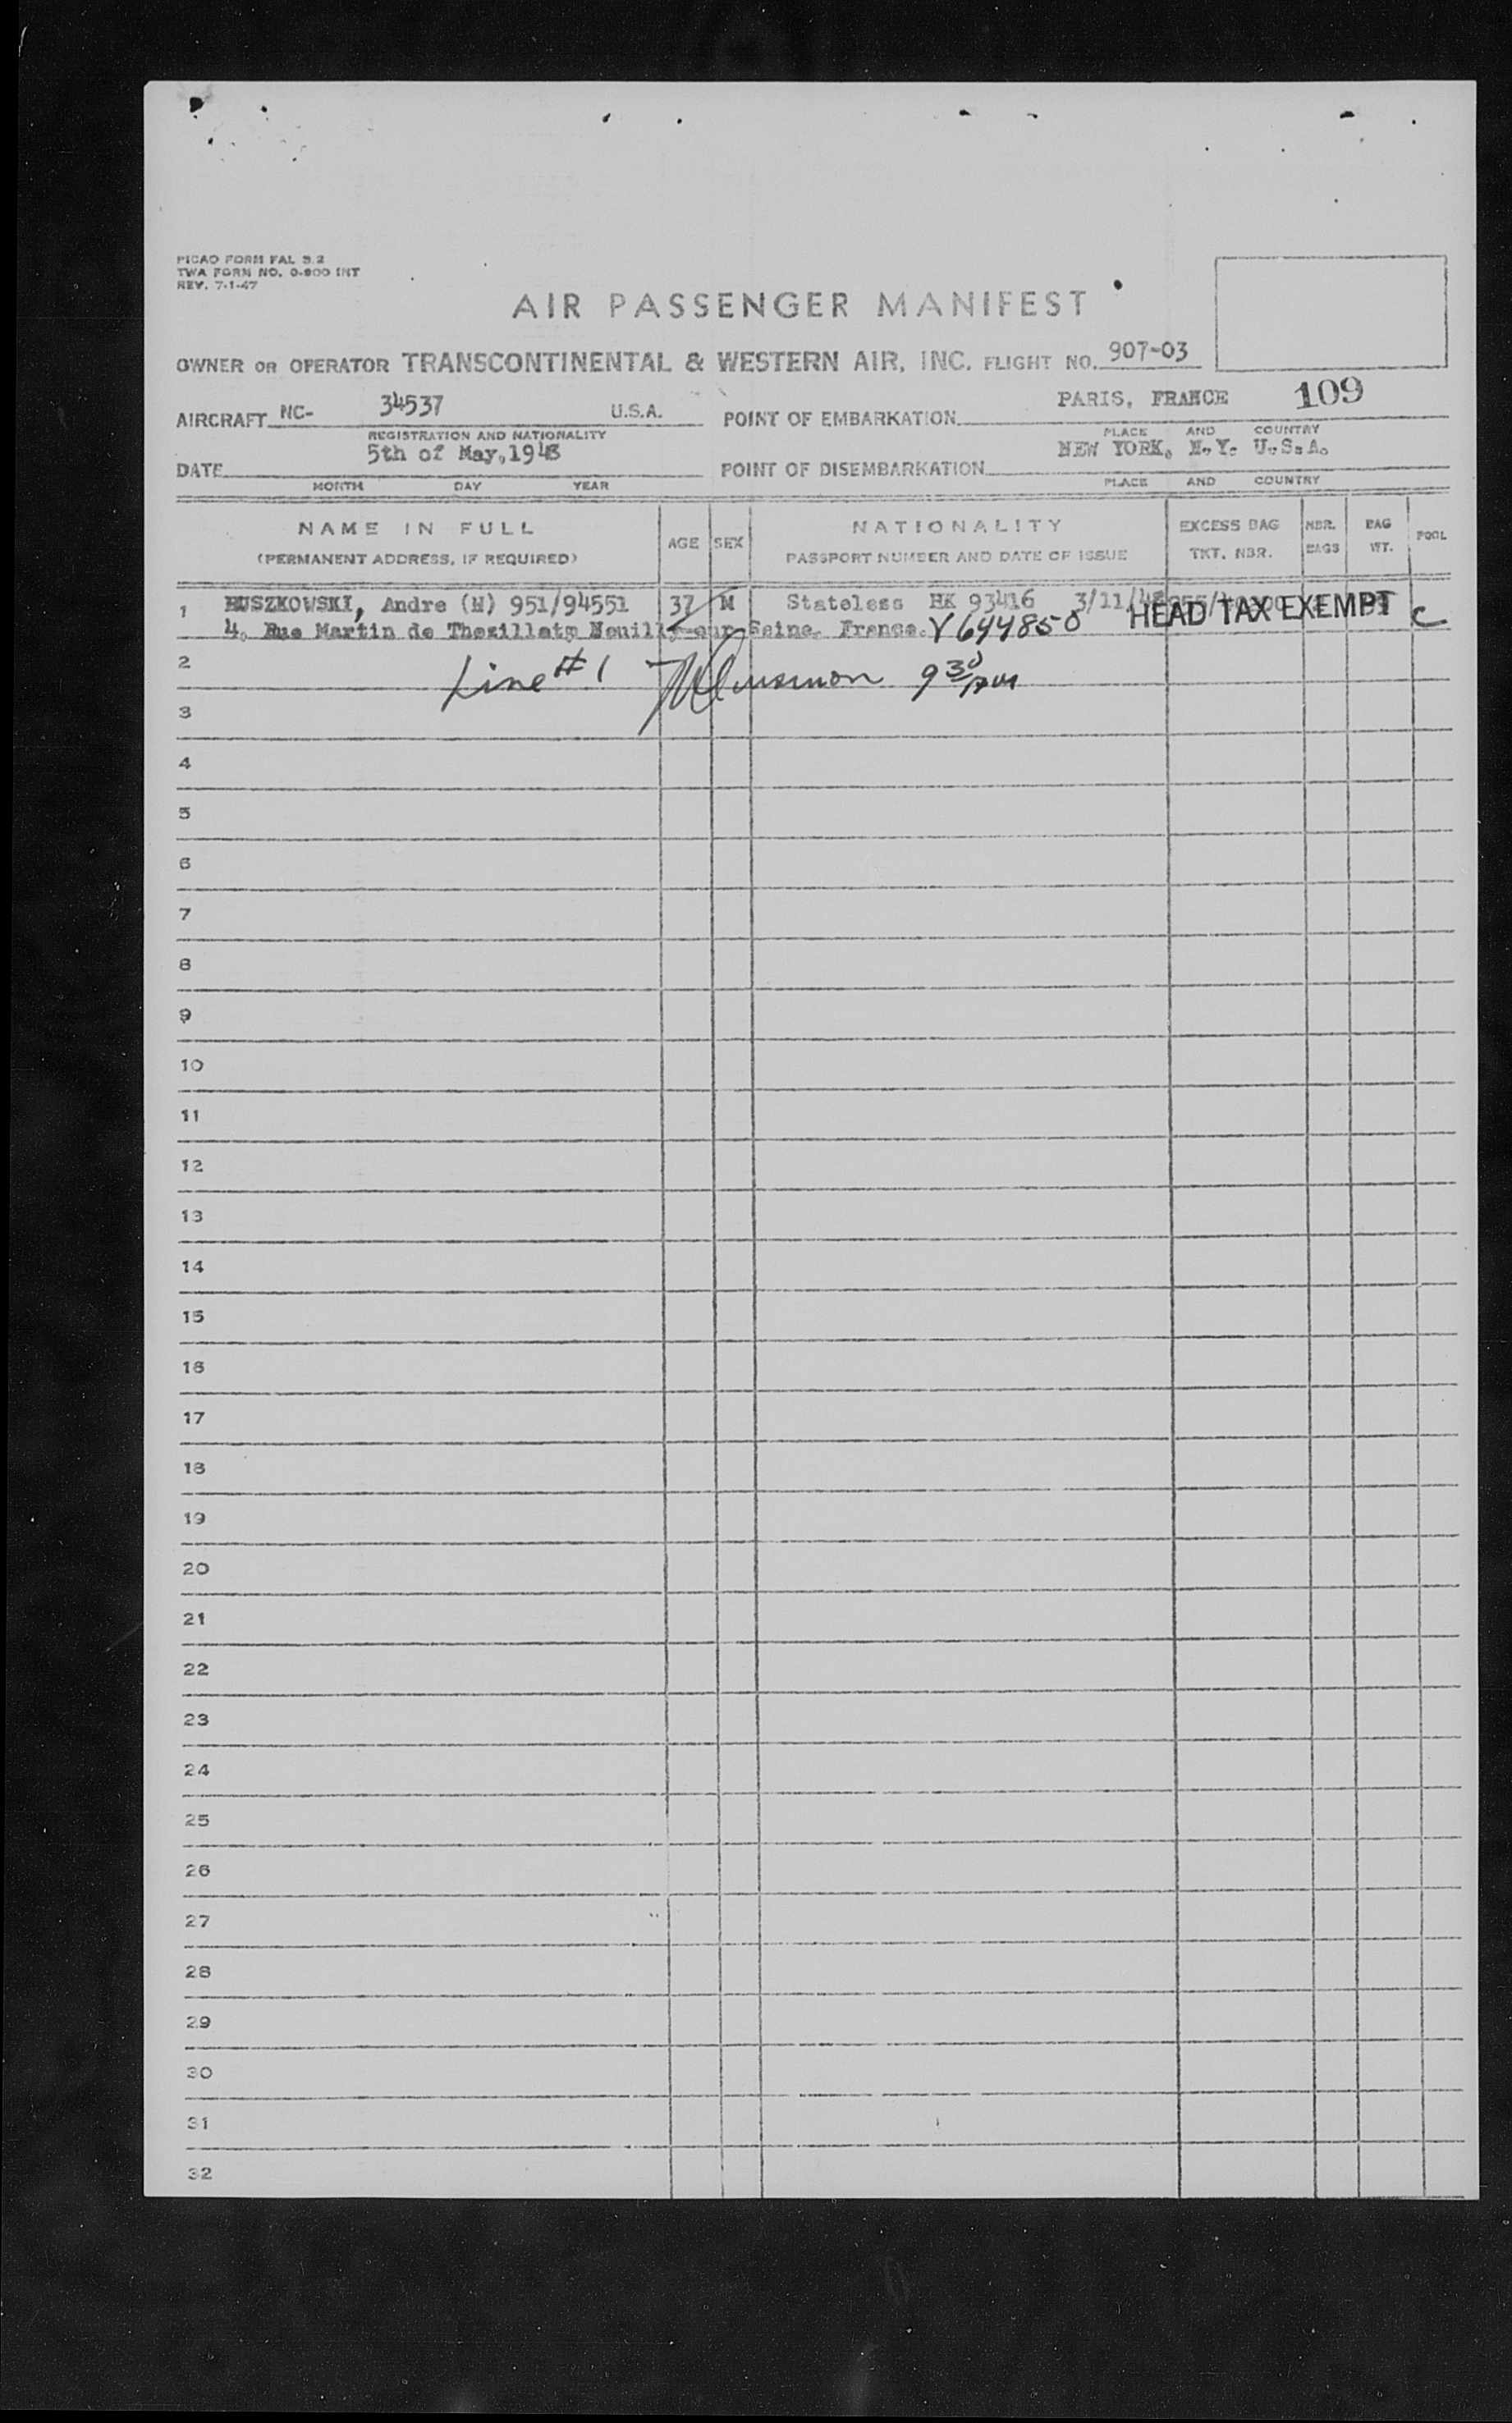 PICAO FORM FAL 3.2
TWA FORM NO. 0-800 INT
REV. 7-1-47
AIR PASSENGER MANIFEST
OWNER OR OPERATOR TRANSCONTINENTAL & WESTERN AIR, INC. FLIGHT NO. 907-03
109
AIRCRAFT NC- 34537 U.S.A. POINT OF EMBARKATION PARIS, FRANCE
REGISTRATION AND NATIONALITY PLACE AND COUNTRY
DATE 5th of May,1948 POINT OF DISEMBARKATION NEW YORK, N.Y. U.S.A.
MONTH DAY YEAR PLACE AND COUNTRY
NAME IN FULL AGE SEX NATIONALITY EXCESS BAG NBR. BAG POOL
(PERMANENT ADDRESS, IF REQUIRED) PASSPORT NUMBER AND DATE OF ISSUE TKT. NBR. BAGS WT.
1 RUSZKOWSKI, Andre (M) 951/94551 37 M Stateless 93416 3/11/48 HEAD TAX EXEMPT C
4, Rue Martin de Neuilly-sur-Seine, France. V644850
2 Line #1 9 30 PM
3
4
5
6
7
8
9
10
11
12
13
14
15
16
17
18
19
20
21
22
23
24
25
26
27
28
29
30
31
32